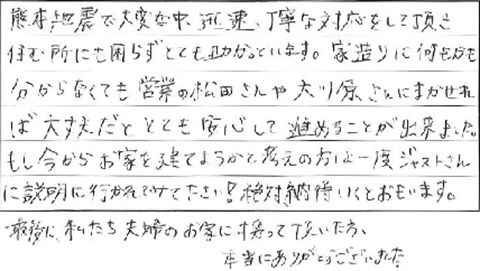 熊本地震で大変な中、迅速、丁寧な対応をして頂き
住む所にも困らずとても助かっています。家造りに何もかも
分からなくても営業の松田さんや大川原さんにまかせれ
ば大丈夫だととても安心して進めることが出来ました。
もし今からお家を建てようかと考えの方は一度ジャストさん
に説明に行かれてみてください!絶対納得いくとおもいます。
最後に、私たち夫婦のお家に携って頂いた方、
本当にありがとうございました